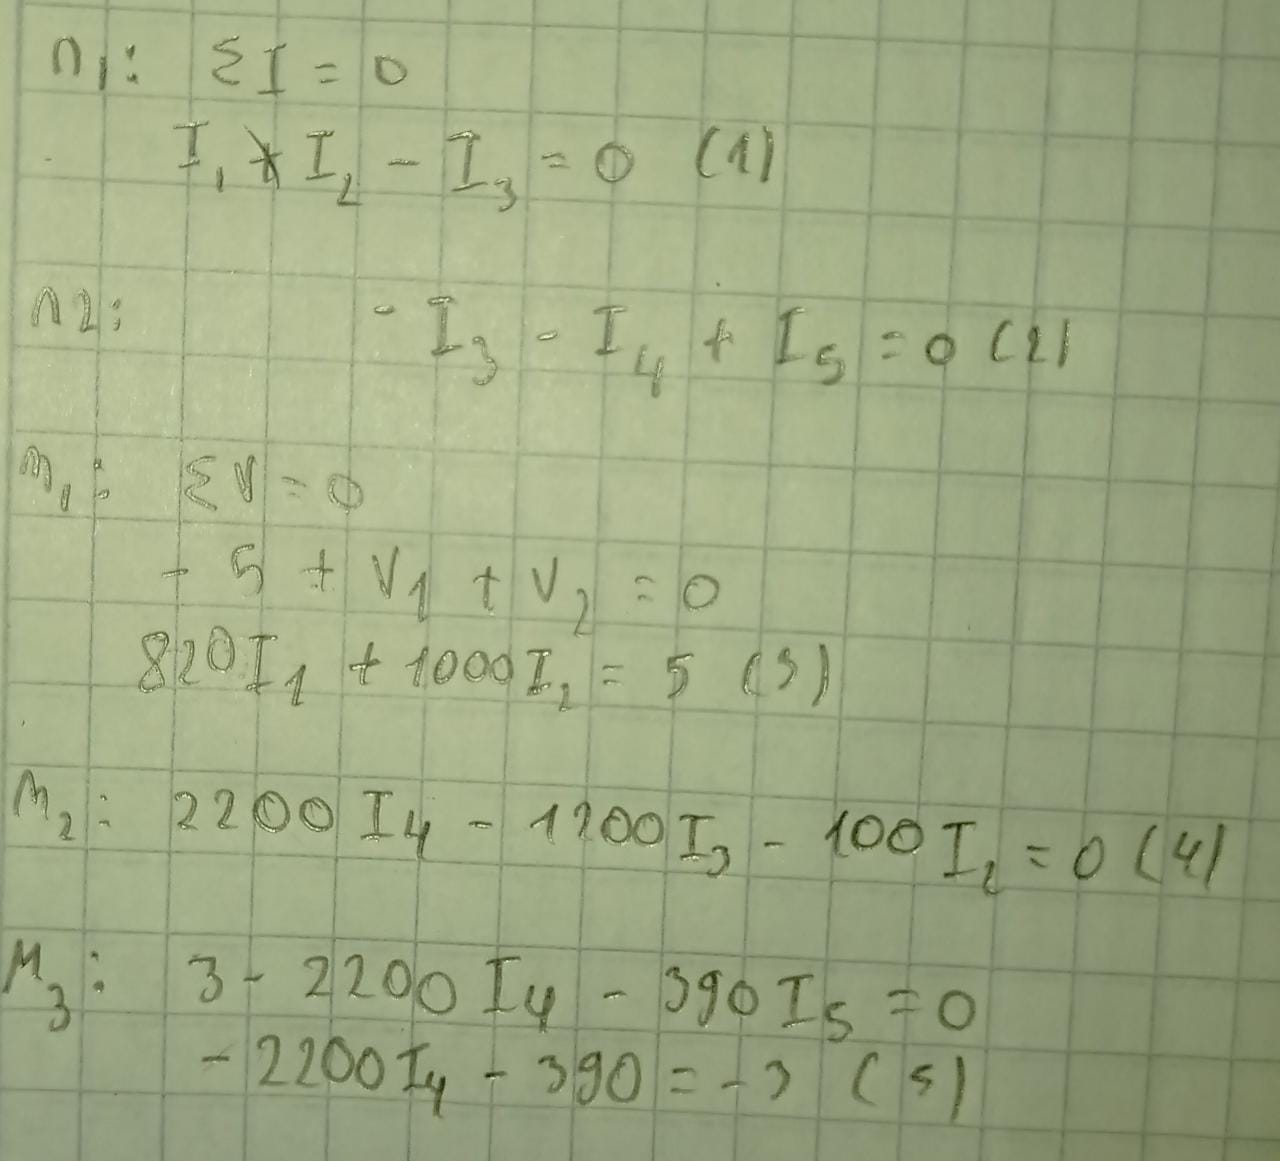 n₁: ΣI = 0
I₁ + I₂ - I₃ = 0 (1)
n2: - I₃ - I₄ + I₅ = 0 (2)
m₁: ΣV = 0
- 5 + V₁ + V₂ = 0
820I₁ + 1000I₂ = 5 (3)
M₂: 2200 I₄ - 1200I₃ - 100 I₂ = 0 (4)
M₃: 3 - 2200 I₄ - 390 I₅ = 0
- 2200I₄ - 390 = - 3 (5)